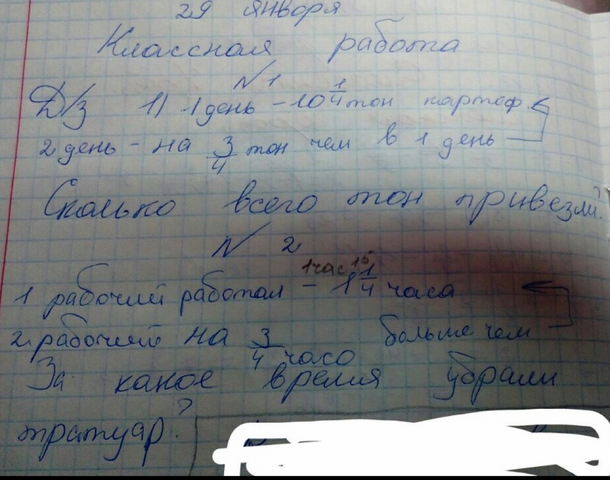 29 января
Классная работа
N 1
Д/з 1) 1 день - 10 1/4 тон картоф
2 день - на 3/4 тон чем в 1 день
Сколько всего тон привезли?
N 2
1 час 15
1 рабочий работал - 1 1/4 часа
2 рабочий на 3/4 часо больше чем
За какое время убрали
тратуар?